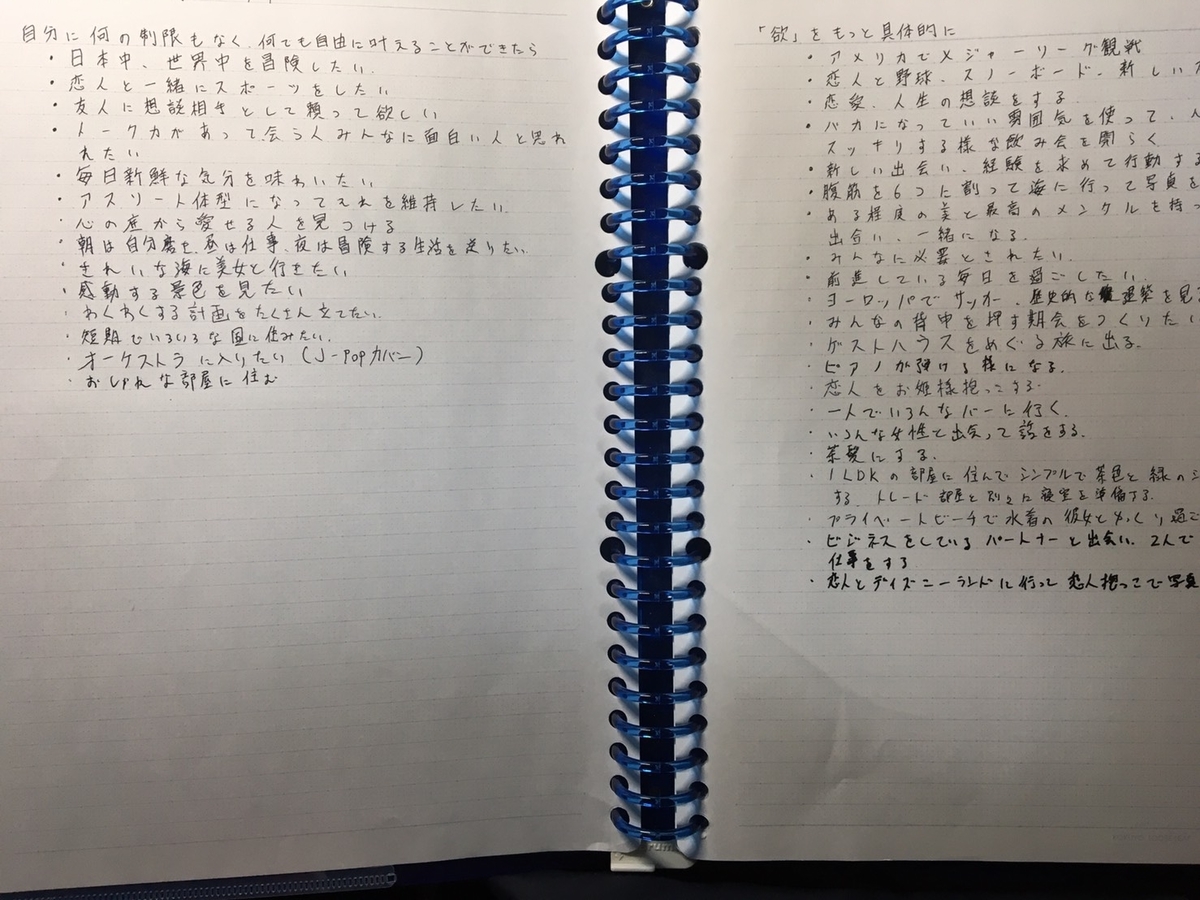 自分に何の制限もなく、何でも自由に叶えることができたら
・日本中、世界中を冒険したい。
・恋人と一緒にスポーツをしたい
・友人に想談相手として頼って欲しい
・トーク力があって、会う人みんなに面白い人と思わ
れたい
・毎日新鮮な気分を味わいたい
・アスリート体型になってそれを維持したい。
・心の底から愛せる人を見つける
・朝は自分磨き、昼は仕事、夜は冒険する生活を送りたい
・きれいな海に美女と行きたい
・感動する景色を見たい
・わくわくする計画をたくさん立てたい。
・短期でいろいろな国に住みたい。
・オーケストラに入りたい(J-Popカバー)
・おしゃれな部屋に住む
「欲」をもっと具体的に
・アメリカでメジャーリーグ観戦
・恋人と野球、スノーボード、新しい
・恋愛、人生の想談をする
・バカになっていい雰囲気を使って、
スッキリする様な飲み会を開らく
・新しい出会い、経験を求めて行動する
・腹筋を6つに割って海に行って写真を
・ある程度の美と最高のメンタルを持っ
出合い、一緒になる。
・みんなに必要とされたい。
・前進している毎日を過ごしたい。
・ヨーロッパでサッカー、歴史的な建築を見
・みんなの背中を押す期会をつくりたい
・ゲストハウスをめぐる旅に出る。
・ピアノが弾ける様になる。
・恋人をお姫様抱っこする。
・一人でいろんなバーに行く。
・いろんな女性と出会って話をする。
・茶髪にする。
・1LDKの部屋に住んでシンプルで茶色と緑の
する。トレード部屋と別々に寝室を準備する。
・プライベートビーチで水着の彼女とゆっくり過ご
・ビジネスをしているパートナーと出会い、2人で
仕事をする
・恋人とディズニーランドに行って恋人抱っこで写真